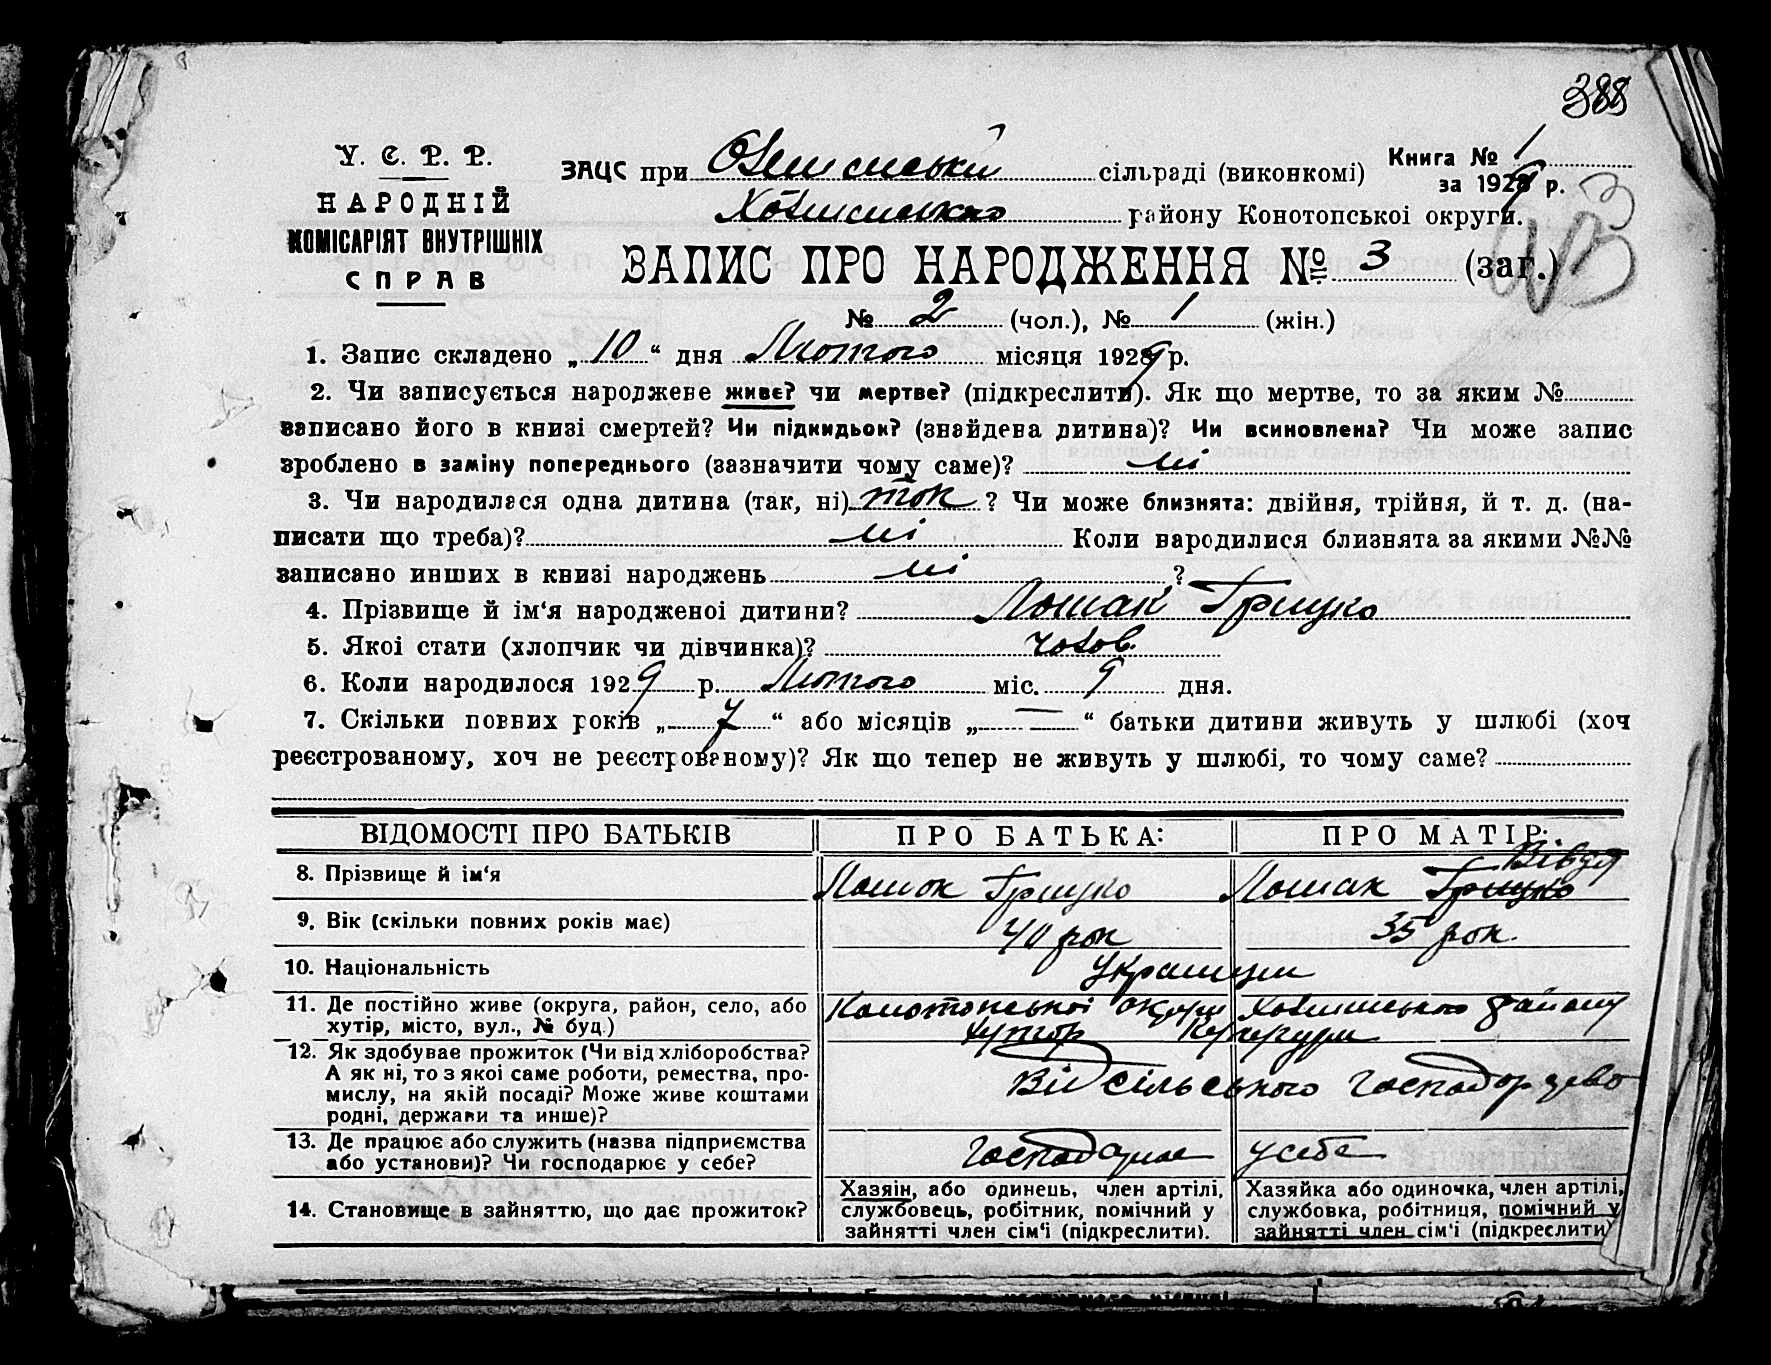 388
У. С. Р. Р.
НАРОДНІЙ
КОМІСАРІЯТ ВНУТРІШНІХ
СПРАВ
ЗАЦС при сільраді (виконкомі)
Книга № 1
за 1929 р.
району Конотопської округи.
ЗАПИС ПРО НАРОДЖЕННЯ № 3 (заг.)
№ 2 (чол.), № 1 (жін.)
1. Запис складено „10“ дня Лютого місяця 1929 р.
2. Чи записується народжене живе? чи мертве? (підкреслити). Як що мертве, то за яким №
записано його в книзі смертей? Чи підкидьок? (знайдена дитина)? Чи всиновлена? Чи може запис
зроблено в заміну попереднього (зазначити чому саме)? ні
3. Чи народилася одна дитина (так, ні) так ? Чи може близнята: двійня, трійня, й т. д. (на-
писати що треба)? ні Коли народилися близнята за якими №№
записано инших в книзі народжень ні ?
4. Прізвище й ім‘я народженої дитини? Лошак Грицко
5. Якої стати (хлопчик чи дівчинка)? чолов.
6. Коли народилося 1929 р. Лютого міс. 9 дня.
7. Скільки повних років „ 7 “ або місяців „ — “ батьки дитини живуть у шлюбі (хоч
реєстрованому, хоч не реєстрованому)? Як що тепер не живуть у шлюбі, то чому саме?
ВІДОМОСТІ ПРО БАТЬКІВ ПРО БАТЬКА: ПРО МАТІР:
8. Прізвище й ім‘я Лошок Грицко Лошак Грицко Вівдя
9. Вік (скільки повних років має) 40 рок 35 рок.
10. Національність Українци
11. Де постійно живе (округа, район, село, або Конотопської округи району
хутір, місто, вул., № буд.) хутор
12. Як здобуває прожиток (Чи від хліборобства?
А як ні, то з якої саме роботи, ремества, про-
мислу, на якій посаді? Може живе коштами Від сільського
родні, держави та инше)?
13. Де працює або служить (назва підприємства
або установи)? Чи господарює у себе? Господарює у себе
14. Становище в зайняттю, що дає прожиток?
Хазяїн, або одинець, член артілі,
службовець, робітник, помічний у
зайнятті член сім‘ї (підкреслити).
Хазяйка або одиночка, член артілі,
службовка, робітниця, помічний у
зайнятті член сім‘ї (підкреслити)